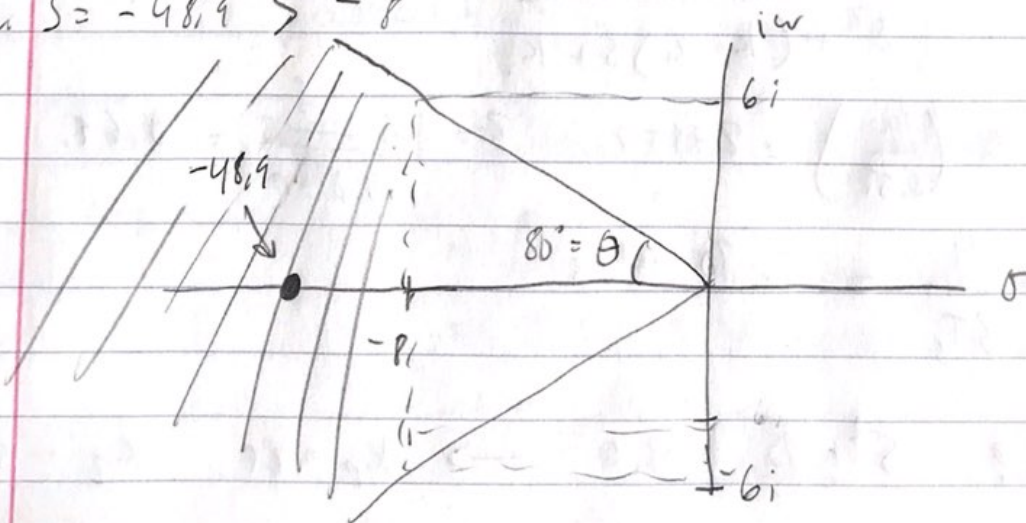 S = -48,9 > -8
iω
6i
-48,9
80° = θ
σ
-8
-6i